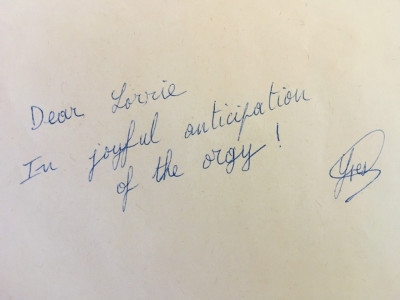 Dear Lorrie
In joyful anticipation
of the orgy!